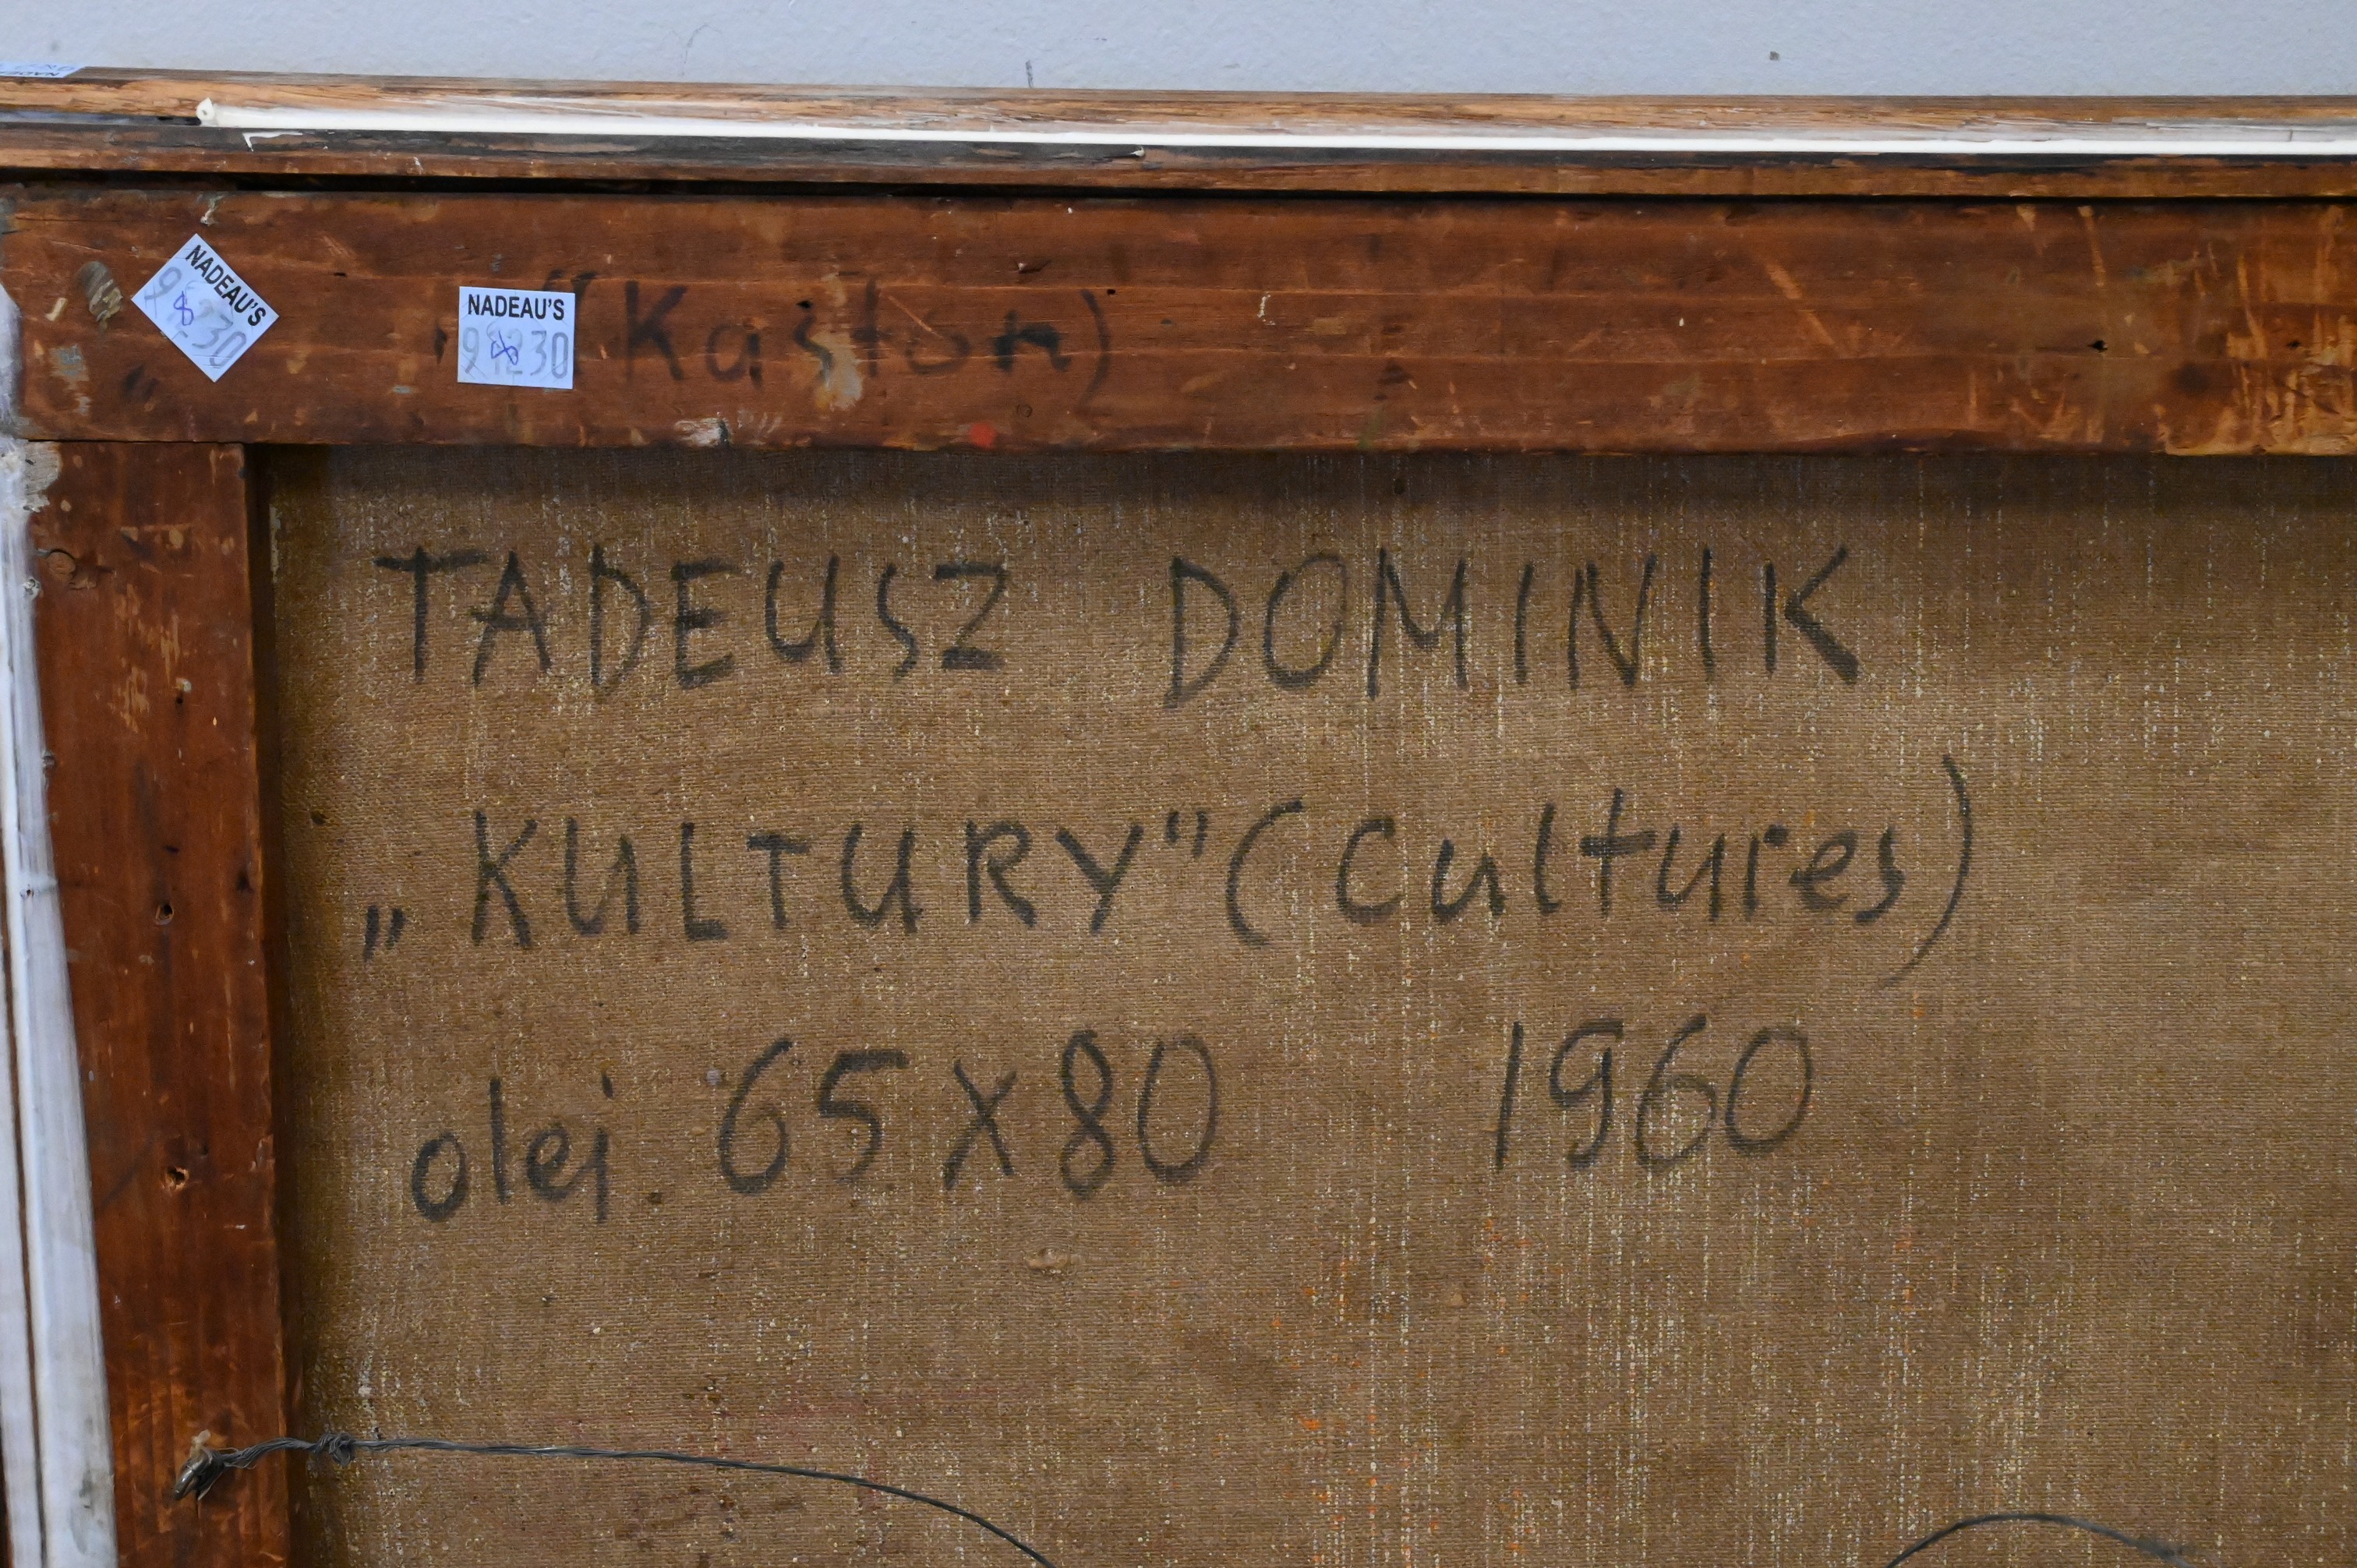 NADEAU'S
NADEAU'S
Kaston)
TADEUSZ DOMINIK
„KULTURY" (Cultures)
olej 65 x 80 1960